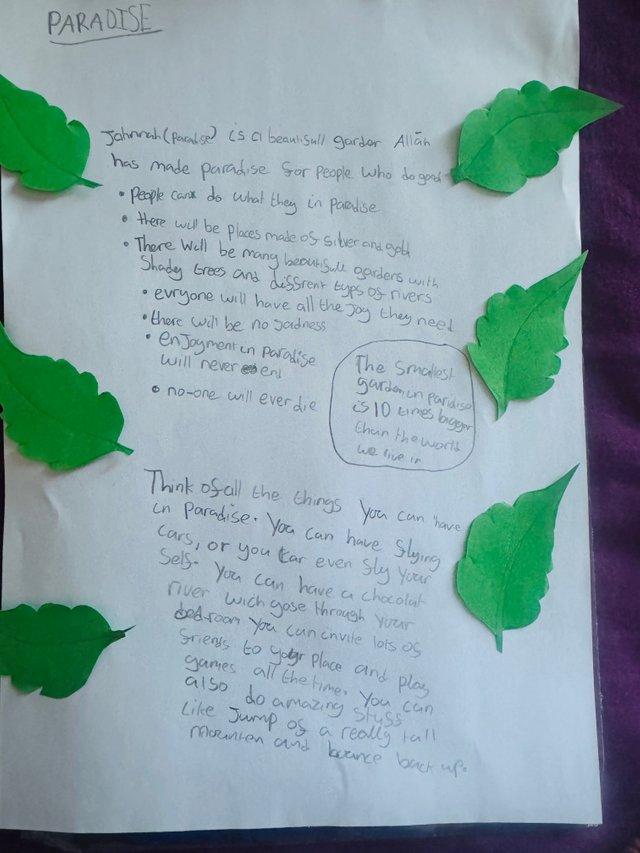 PARADISE
Jahnnah (Paradise) is a beautifull garden Allāh
has made paradise for people who do good
• People can do what they in paradise
• there will be places made of silver and gold
• There will be many beautifull gardens with
Shady trees and diffrent typs of rivers
• evryone will have all the joy they need
• there will be no sadness
• enjoyment in paradise
will never end
• no-one will ever die
The smallest
garden in paridise
is 10 times bigger
than the world
we live in
Think of all the things you can have
in paradise. You can have flying
cars, or you can even fly your
self. You can have a chocolat
river wich gose through your
bedroom you can invite lots of
friends to your place and play
games all the time. You can
also do amazing stuff
like Jump of a really tall
mounten and bounce back up.